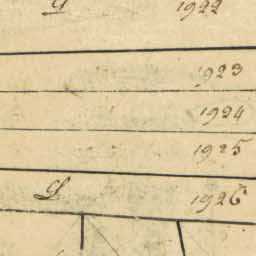 1922
1923
1924
1925
L 1926